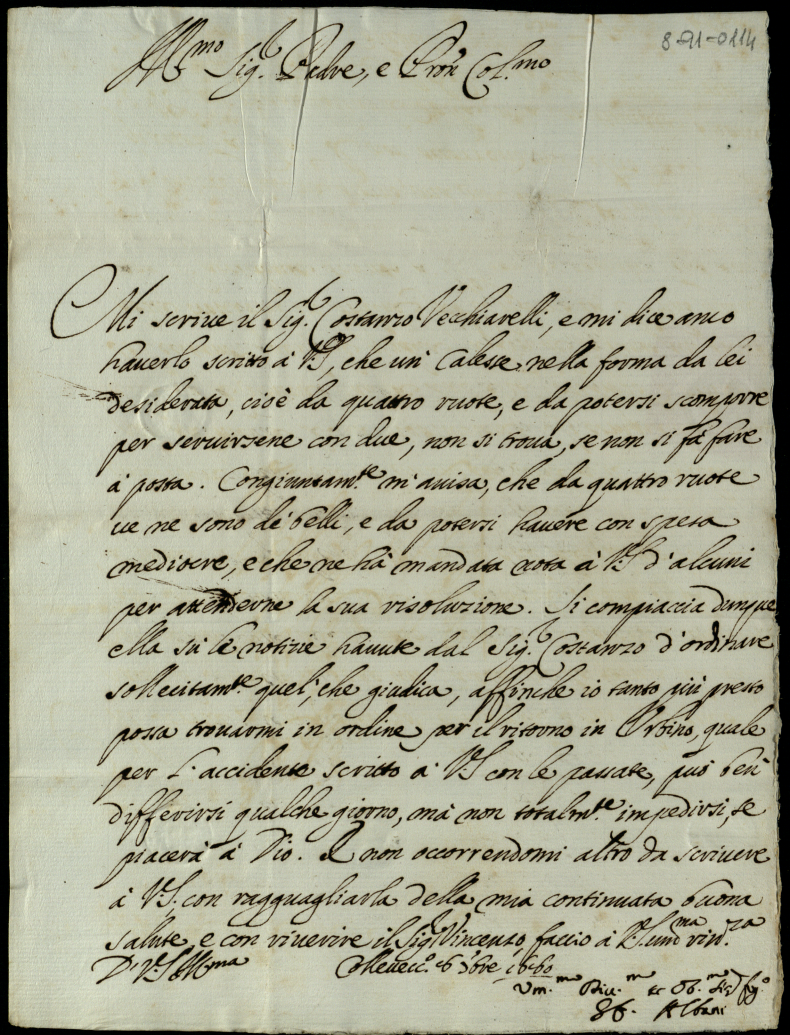 8-91-0114
Ill.mo Sig.r Padre, e Pron Col.mo
Mi scriue il Sig.r Costanzo Vecchiarelli, e mi dice anco
hauerlo scritto à V.S., che un' Calesse nella forma da lei
desiderata, cioè da quattro ruote, e da potersi scomporre
per seruirsene con due, non si troua, se non si fà fare
à posta. Congiuntam.te m'auisa, che da quattro ruote
ue ne sono de belli, e da potersi hauere con spesa
mediocre, e che ne hà mandata nota à V.S. d'alcuni
per attenderne la sua risoluzione. Si compiaccia dunque
ella sù le notizie hauute dal Sig.r Costanzo d'ordinare
sollecitam.te quel, che giudica, affinche io tanto più presto
possa trouarmi in ordine per il ritorno in Urbino, quale
per l'accidente scritto à V.S. con le passate, può ben
differirsi qualche giorno, mà non totalm.te impedirsi, se
piacerà à Dio. E non occorrendomi altro da scriuere
à V.S. con ragguagliarla della mia continuata buona
salute, e con riuerire il Sig.r Vincenzo faccio à V.S. um.ma riu.za
Di V.S. Ill.ma 6 1660
Um.mo Diu.mo et Ob.mo fig.o
Albani